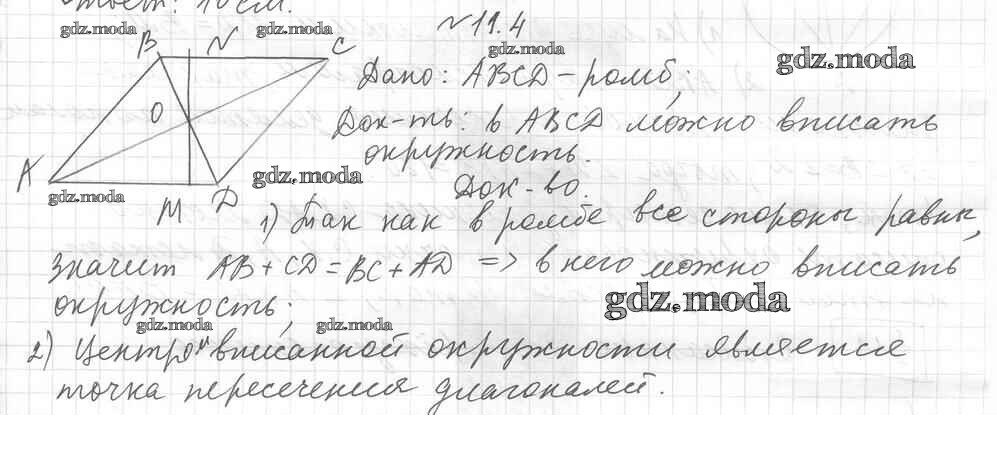 Ответ: 10 см.
gdz.moda gdz.moda
№ 11.4
gdz.moda
B N C
gdz.moda
Дано: ABCD – ромб;
O
Док-ть: в ABCD можно вписать
окружность.
A
gdz.moda
gdz.moda
Док-во.
M D
1) Так как в ромбе все стороны равны,
значит AB + CD = BC + AD => в него можно вписать
gdz.moda
окружность;
gdz.moda gdz.moda
2) Центром вписанной окружности является
точка пересечения диагоналей.